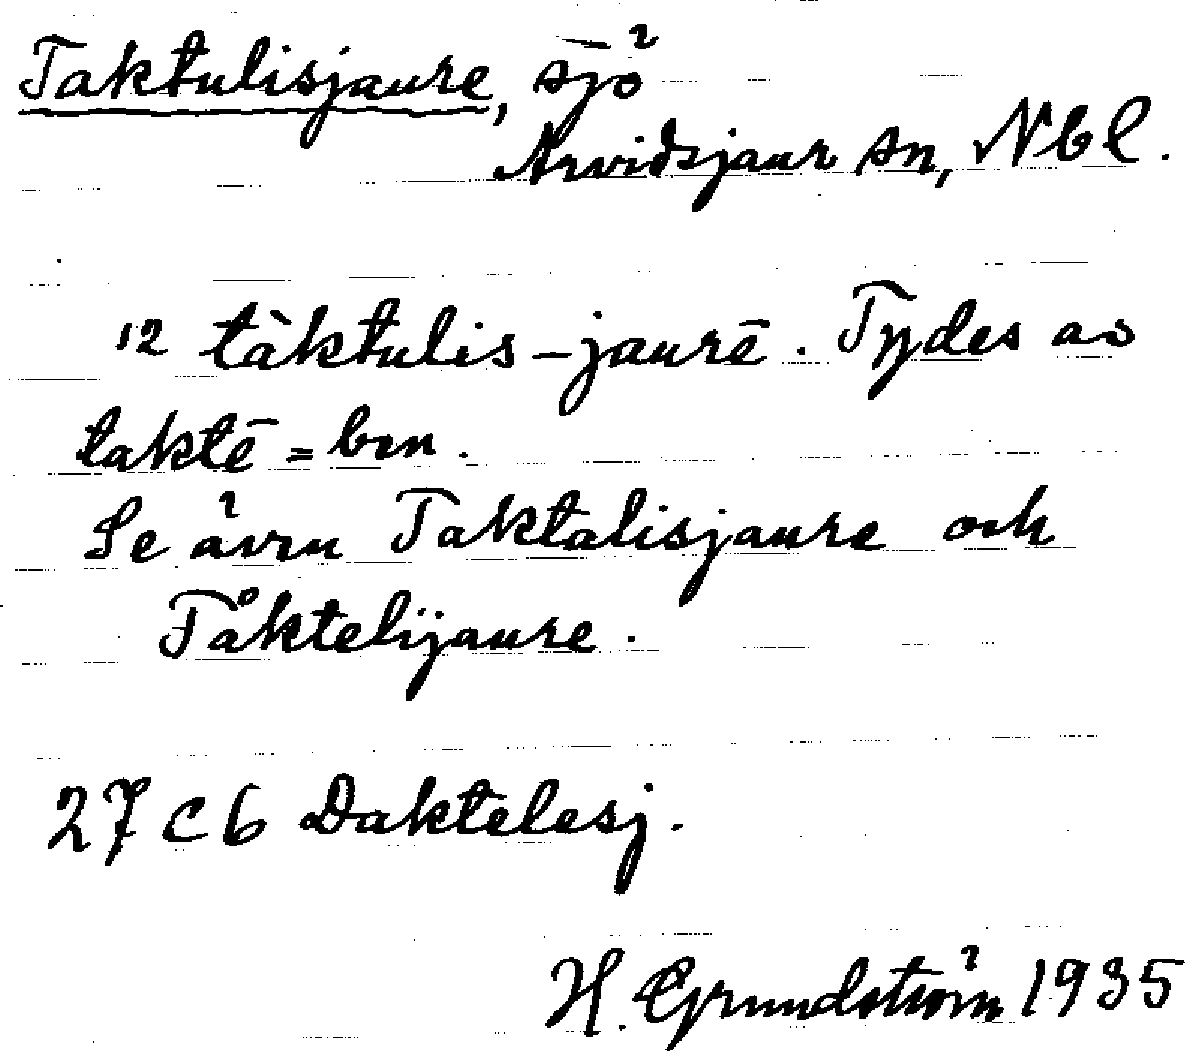 Taktulisjaure, sjö
Arvidsjaur sn, Nbl.
12 tàktulis-jaurē. Tydes av
taktē = ben.
Se även Taktalisjaure och
Tåktelijaure.
27 C 6 Daktelesj.
H. Grundström 1935